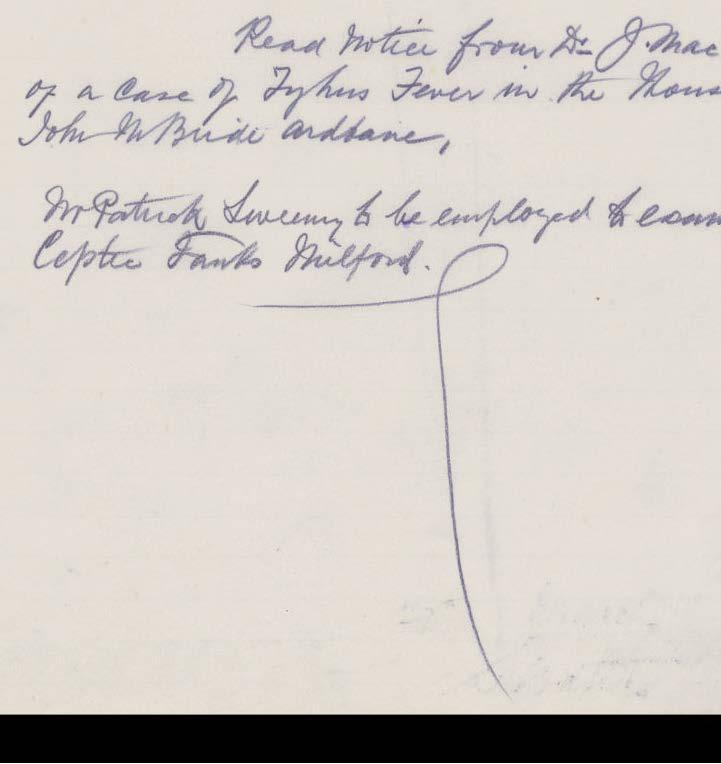 Read Notice from Dr J. Mac
of a Case of Typhus Fever in the Hous
John McBride Ardbane,
Mr Patrick Sweeney to be employed to exam
Ceptic Tanks Milford.